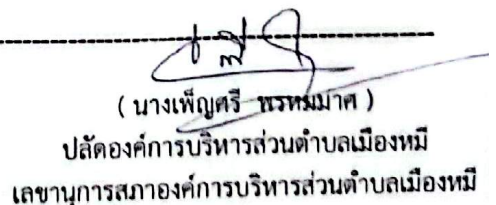 ( นางเพ็ญศรี พรหมมาศ )
ปลัดองค์การบริหารส่วนตำบลเมืองหมี
เลขานุการสภาองค์การบริหารส่วนตำบลเมืองหมี